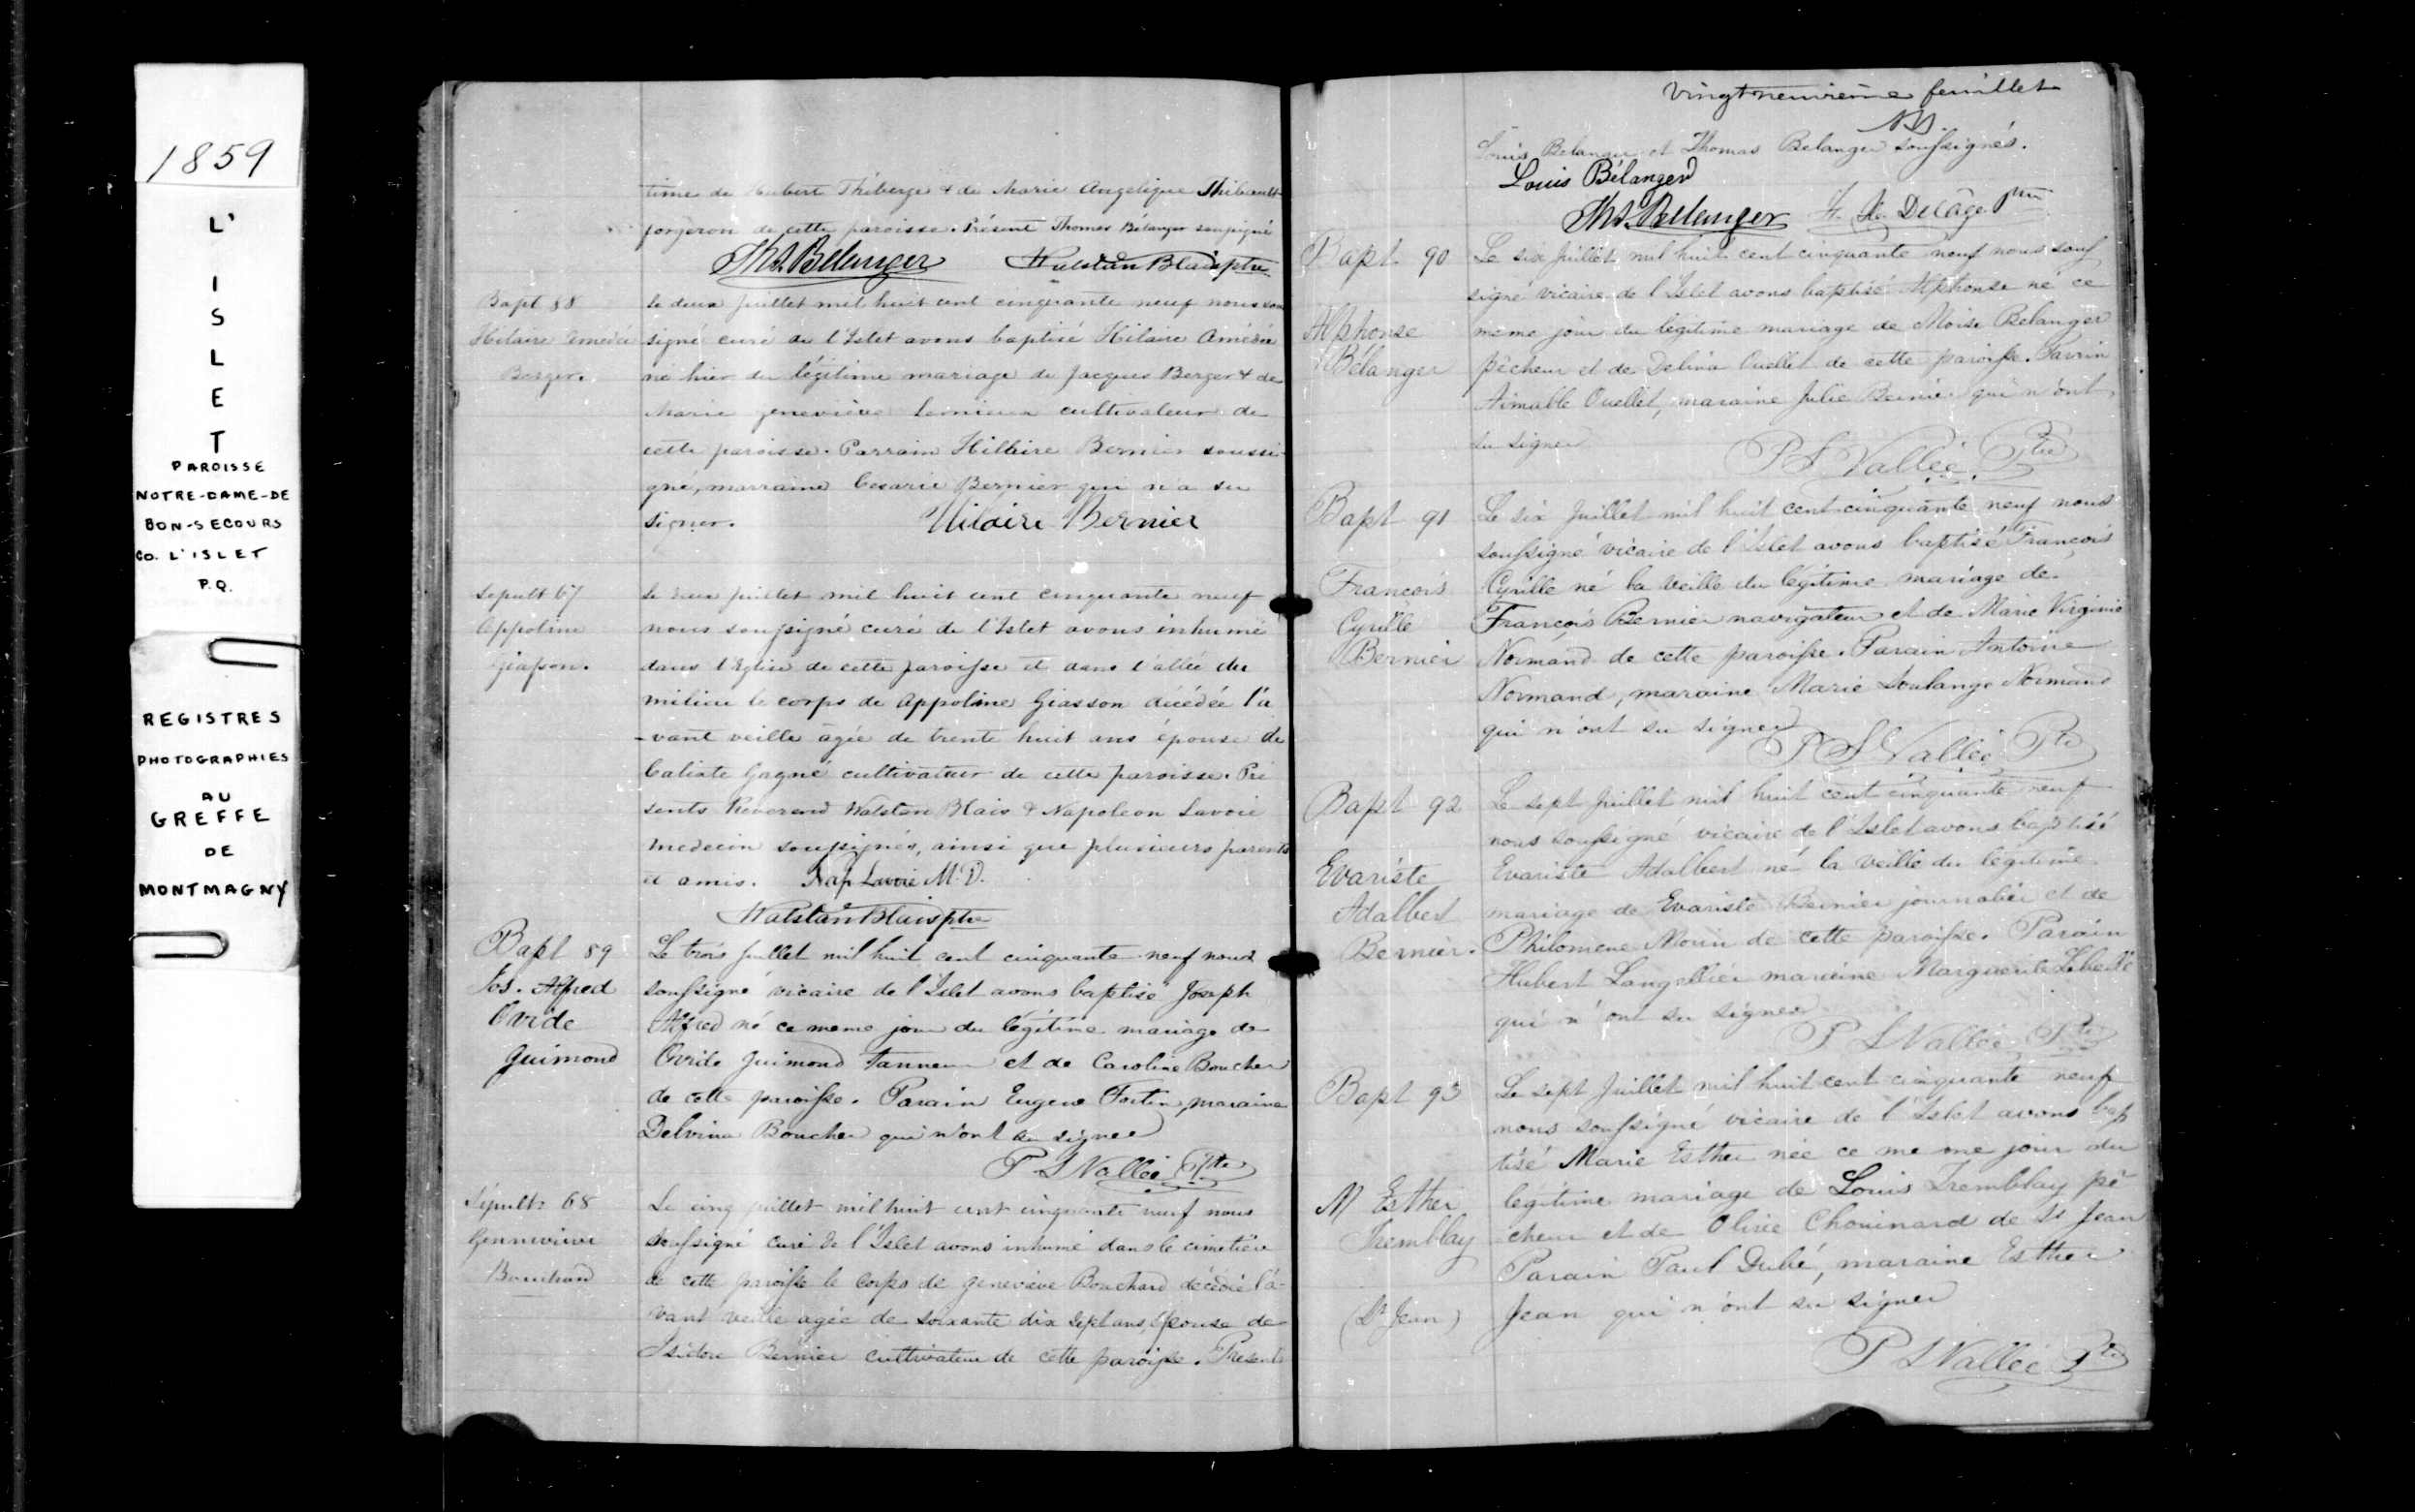 1859
L'
I
S
L
E
T
PAROISSE
NOTRE-DAME-DE
BON-SECOURS
CO. L'ISLET
P.Q.
REGISTRES
PHOTOGRAPHIES
AU
GREFFE
DE
MONTMAGNY
time de Hubert Théberge & de Marie Angélique Thibault
forgeron de cette paroisse. Présent Thomas Bélanger soussigné
Ths. Bélenger Walstan Blais ptre
Bapt 88
Hilaire Amedée
Berger.
Le deux juillet mil huit cent cinquante neuf nous sous
signé curé de l'Islet avons baptisé Hilaire Amédée
né hier du légitime mariage de Jacques Berger & de
Marie geneviève Lemieux cultivateur de
cette paroisse. Parrain Hillaire Bernier soussi-
gné, marraine Cesarie Bernier qui n'a su
signer. Hilaire Bernier
Sepult 67
Appoline
Giasson.
Le deux juillet mil huit cent cinquante neuf
nous soussigné curé de l'Islet avons inhumé
dans l'Eglise de cette paroisse et dans l'allée du
milieu le corps de Appoline Giasson décédée l'a
-vant veille agée de trente huit ans épouse de
Calixte Gagné cultivateur de cette paroisse. Pré
sents Reverend Walstan Blais & Napoleon Lavoie
medecin soussignés, ainsi que plusieurs parents
et amis. Nap Lavoie M.D.
Walstan Blais ptre
Bapt 89
Jos. Alfred
Ovide
Guimond
Le trois Juillet mil huit cent cinquante neuf nous
soussigné vicaire de l'Islet avons baptisé Joseph
Alfred né ce meme jour du légitime mariage de
Ovide Guimond tanneur et de Caroline Boucher
de cette paroisse. Parain Eugene Fortin, maraine
Delvina Boucher qui n'ont su signer
P S Vallée Ptre
Sépult: 68
Gennevieve
Bouchard
Le cinq juillet mil huit cent cinquante neuf nous
soussigné curé de l'Islet avons inhumé dans le cimetière
de cette paroisse le corps de geneviève Bouchard décédée l'a-
vant veille agée de soixante dix sept ans, épouse de
Isidore Bernier cultivateur de cette paroisse. Presents
Vingt neuvieme feuillet
Louis Belanger et Thomas Belanger soussignés.
Louis Bélanger
Ths. Bélenger F. X. Delâge Ptre
Bapt 90
Alphonse
Bélanger
Le six Juillet mil huit cent cinquante neuf nous sous
signé vicaire de l'Islet avons baptisé Alphonse né ce
meme jour du légitime mariage de Moise Belanger
pêcheur et de Delina Ouellet de cette paroisse. Parrin
Aimable Ouellet, maraine Julie Bernier qui n'ont
su signer
P S Vallée Ptre
Bapt 91
Francois
Cyrille
Bernier
Le six Juillet mil huit cent cinquante neuf nous
soussigné vicaire de l'Islet avons baptisé François
Cyrille né la veille du légitime mariage de
François Bernier navigateur et de Marie Virginie
Normand de cette paroisse. Parain Antoine
Normand, maraine Marie Soulange Normand
qui n'ont su signer
P S Vallée Ptre
Bapt 92
Evariste
Adalbert
Bernier.
Le sept Juillet mil huit cent cinquante neuf
nous soussigné vicaire de l'Islet avons baptisé
Evariste Adalbert né la veille du légitime
mariage de Evariste Bernier journalier et de
Philomene Morin de cette paroisse. Parain
Hubert Langellier maraine Marguerite
qui n'ont su signer
P S Vallée Ptre
Bapt 93
M Esther
Tremblay
(St Jean)
Le sept Juillet mil huit cent cinquante neuf
nous soussigné vicaire de l'Islet avons bap
tisé Marie Esther née ce me me jour du
legitime mariage de Louis Tremblay pê
cheur et de Olive Chouinard de St Jean
Parain Paul Dubé, maraine Esther
Jean qui n'ont su signer
P S Vallée Ptre